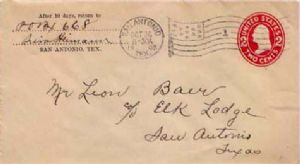 After 10 days, return to
P O Box 668
San Antonio
SAN ANTONIO, TEX.
SAN ANTONIO
TEX.
UNITED STATES
2 2
TWO CENTS
Mr Leon Baer
c/o Elk Lodge
San Antonio
Texas